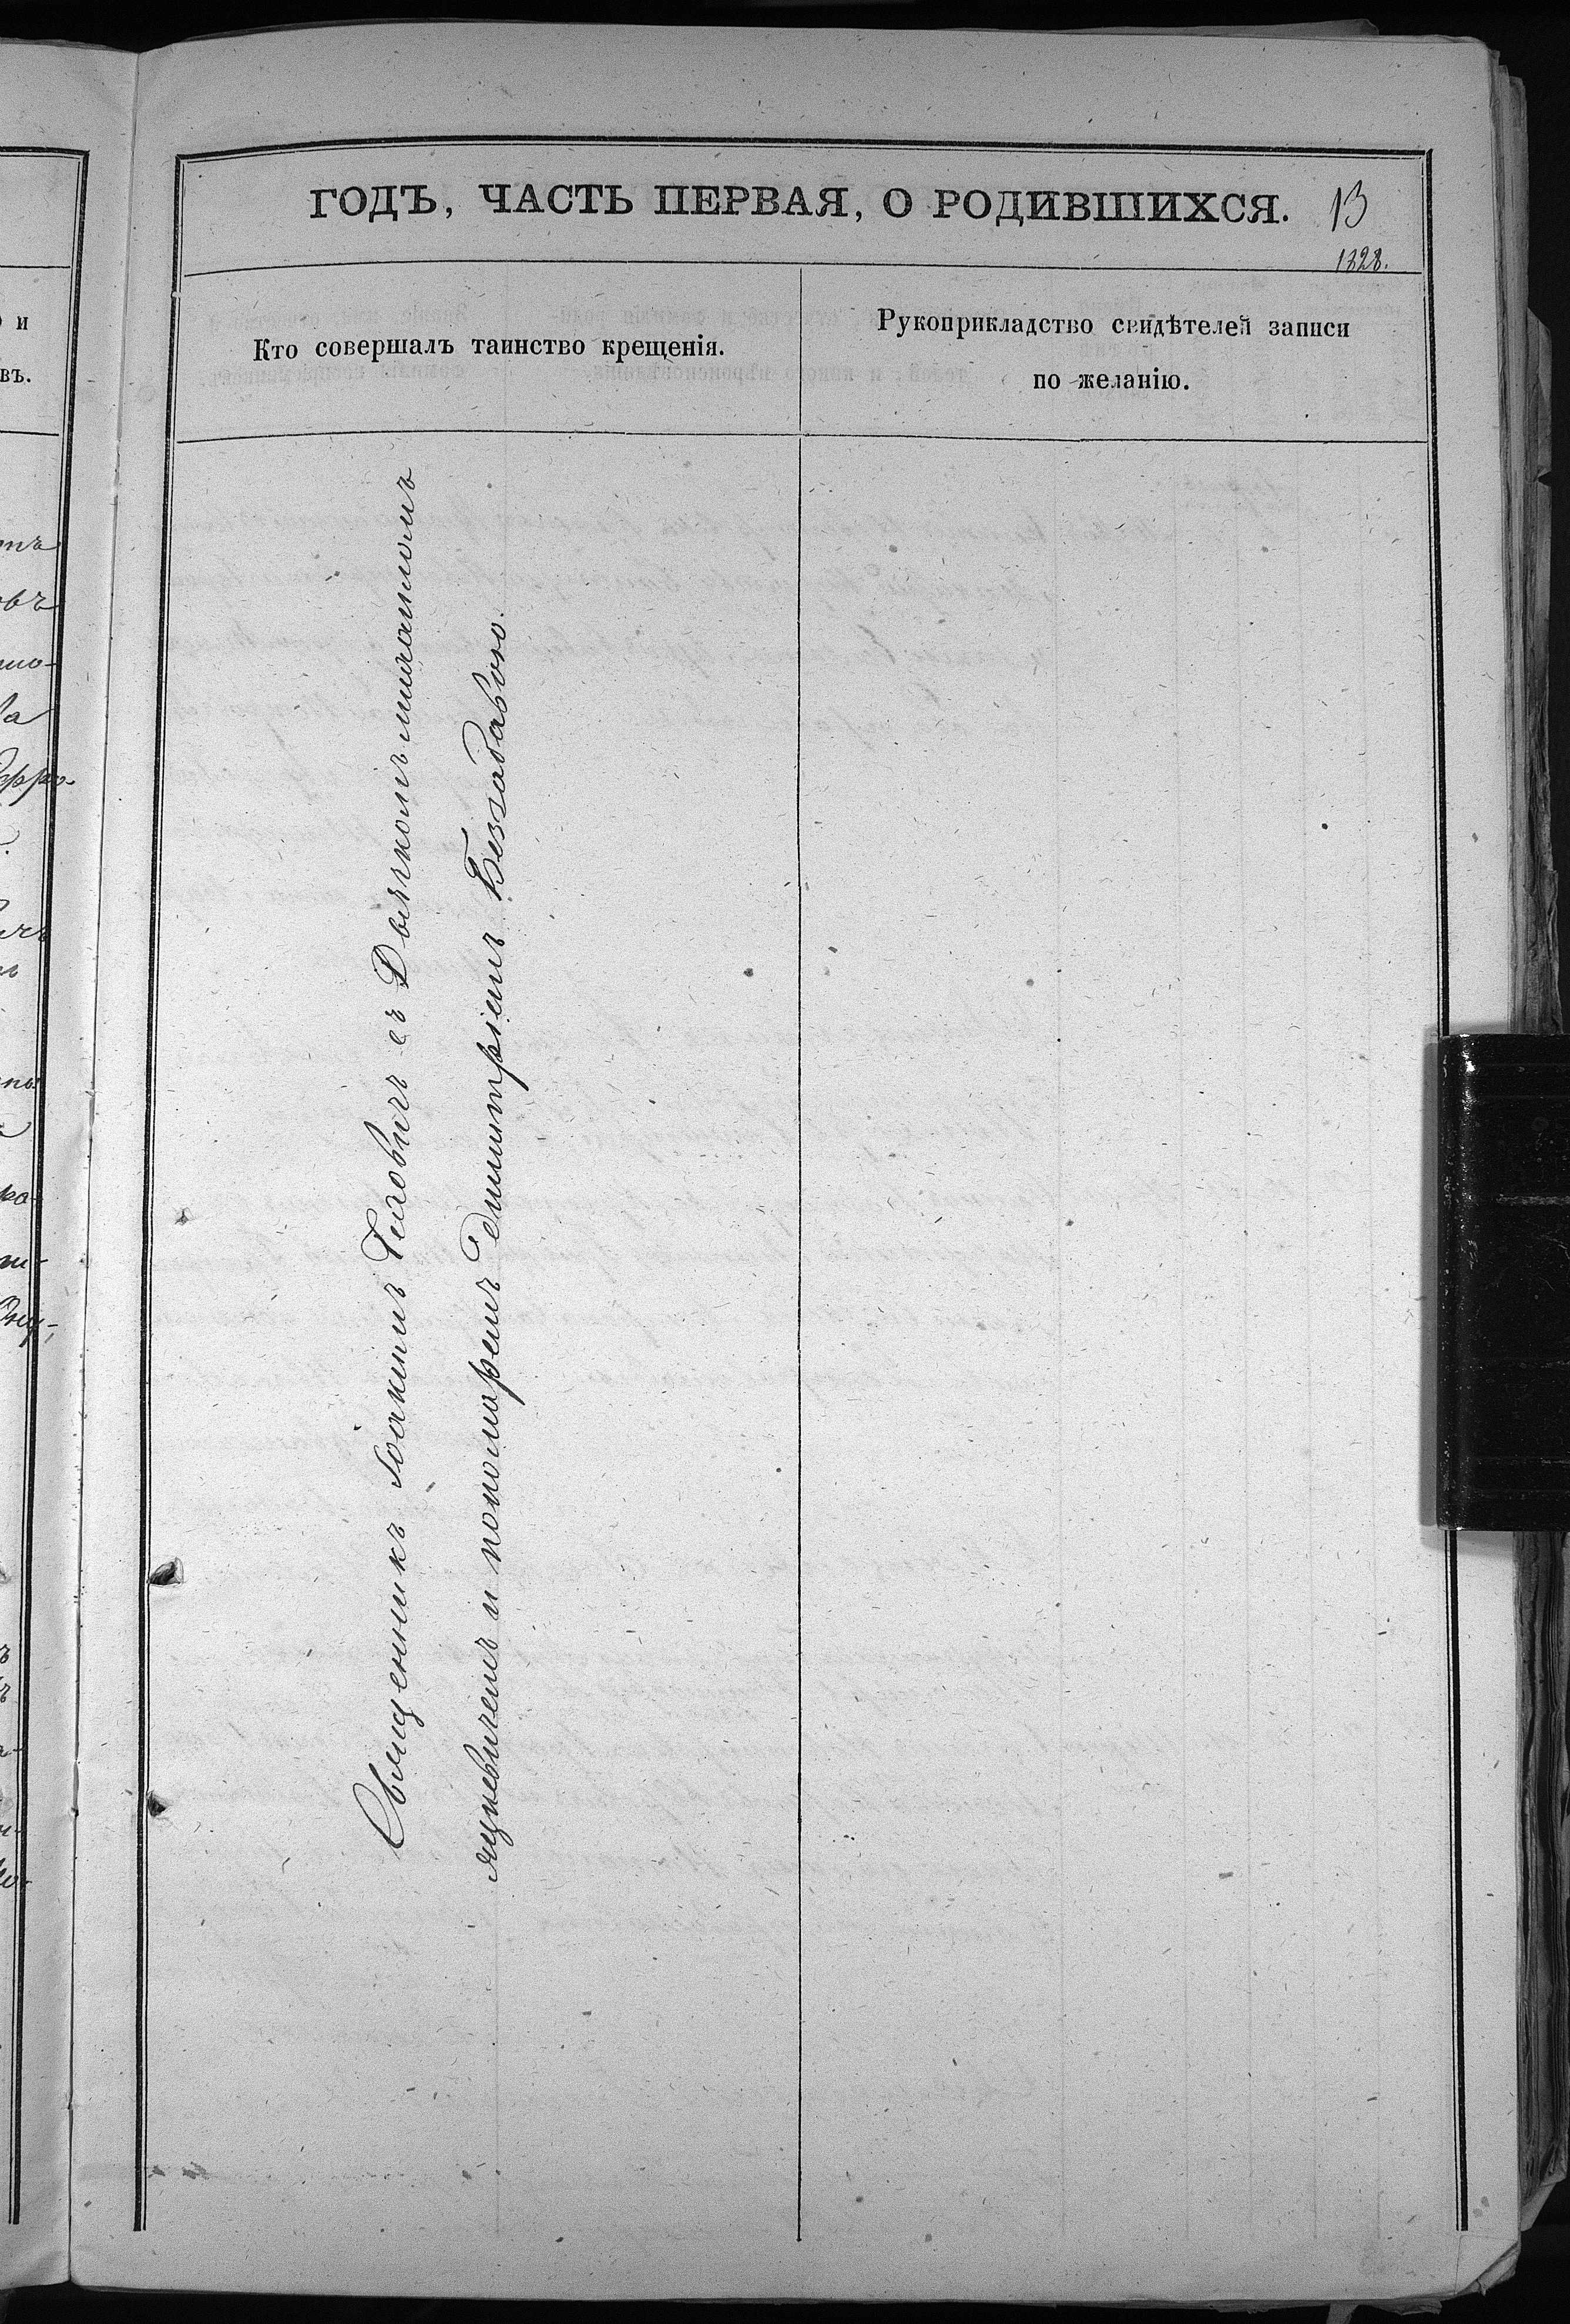 ГОДЪ, ЧАСТЬ ПЕРВАЯ, О РОДИВШИХСЯ.
13
1328.
Кто совершалъ таинство крещенія.
Рукоприкладство свидѣтелей записи
по желанію.
Священникъ Іоакимъ Гласовичъ съ Дьячкомъ
и пономаремъ Димитріемъ Беззабавою.